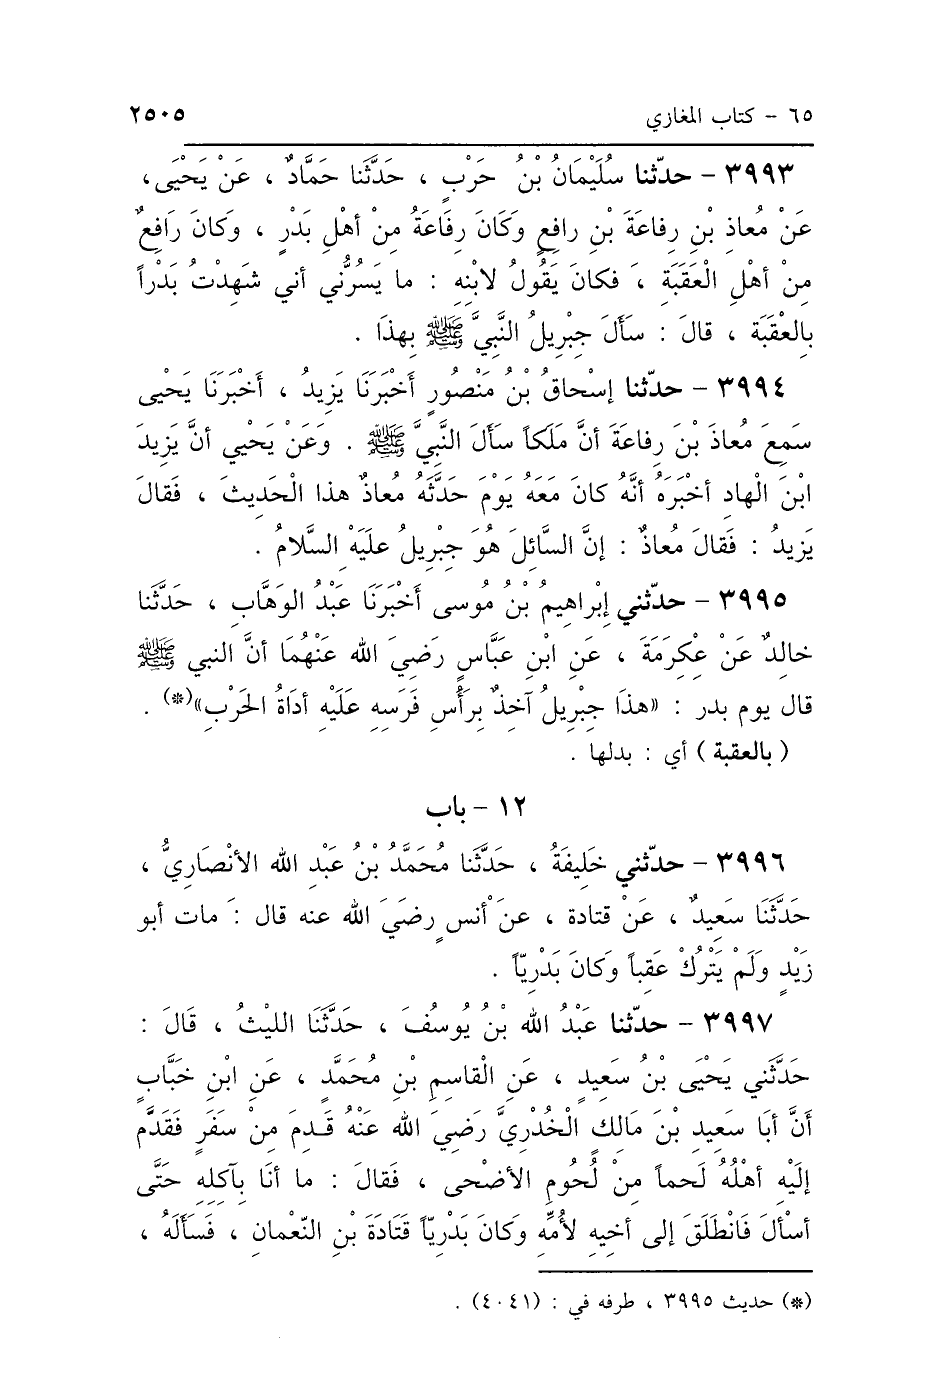 ٦٥ - كتاب المغازي ٢٥٠٥
٣٩٩٣ - حدّثنا سُلَيْمَانُ بْنُ حَرْبٍ ، حَدَّثَنَا حَمَّادٌ ، عَنْ يَحْيَى،
عَنْ مُعاذِ بْنِ رِفاعَةَ بْنِ رافِعٍ وَكَانَ رِفَاعَةُ مِنْ أهْلِ بَدْرٍ ، وَكانَ رَافِعٌ
مِنْ أهْلِ الْعَقَبَةِ ، فكانَ يَقُولُ لابْنِهِ : ما يَسُرُّني أني شَهِدْتُ بَدْراً
بالعْقَبَةِ ، قالَ : سأَلَ جِبْرِيلُ النَّبِيَّ ﷺ بِهذَا .
٣٩٩٤ - حدّثنا إسْحاقُ بْنُ مَنْصُورٍ أَخْبَرَنَا يَزِيدُ ، أَخْبَرَنَا يَحْيى
سَمِعَ مُعاذَ بْنَ رِفاعَةَ أنَّ مَلَكاً سأَلَ النَّبِيَّ ﷺ . وَعَنْ يَحْيي أنَّ يَزِيدَ
ابْنَ الْهادِ أخْبَرَهُ أنَّهُ كانَ مَعَهُ يَوْمَ حَدَّثَهُ مُعاذٌ هذا الْحَدِيثَ ، فَقالَ
يَزِيدُ : فَقالَ مُعاذٌ : إنَّ السَّائِلَ هُوَ جِبْرِيلُ علَيَهْ السَّلامُ .
٣٩٩٥ - حدّثني إبْراهِيمُ بْنُ مُوسى أَخْبَرَنَا عَبْدُ الوَهَّابِ ، حَدَّثَنا
خالِدٌ عَنْ عِكْرِمَةَ ، عَنِ ابْنِ عَبَّاسٍ رَضِيَ الله عَنْهُمَا أنَّ النبي ﷺ
قال يوم بدر : «هذَا جِبْرِيلُ آخِذٌ برَأْسِ فَرَسِهِ عَلَيْهِ أدَاةُ الحَرْبِ»(*) .
( بالعقبة ) أي : بدلها .
١٢ - باب
٣٩٩٦ - حدّثني خَلِيفَةُ ، حَدَّثَنا مُحَمَّدُ بْنُ عَبْدِ الله الأنْصَارِيُّ ،
حَدَّثَنَا سَعِيدٌ ، عَنْ قتادة ، عَنْ أنس رضَيَ الله عنه قال : مات أبو
زَيْدٍ ولَمْ يَتْرُكْ عَقِباً وكانَ بَدْرِيّاً .
٣٩٩٧ - حدّثنا عَبْدُ الله بْنُ يُوسُفَ ، حَدَّثَنَا الليْثُ ، قَالَ :
حَدَّثَني يَحْيَى بْنُ سَعِيدٍ ، عَنِ الْقاسِمِ بْنِ مُحَمَّدٍ ، عَنِ ابْنِ خَبَّابٍ
أَنَّ أبَا سَعِيدِ بْنَ مَالِكٍ الْخُدْرِيَّ رَضِيَ الله عَنْهُ قَدِمَ مِنْ سَفَرٍ فَقَدَّمَ
إلَيْهِ أهْلُهُ لَحماً مِنْ لُحُومِ الأضْحى ، فَقالَ : ما أنَا بآكِلِهِ حَتَّى
أسْألَ فَانْطَلَقَ إلى أخيهِ لأُمِّهِ وكَانَ بَدْرِيّاً قَتَادَةَ بْنِ النّعْمانِ ، فَسأَلَهُ ،
(*) حديث ٣٩٩٥ ، طرفه في : (٤٠٤١) .